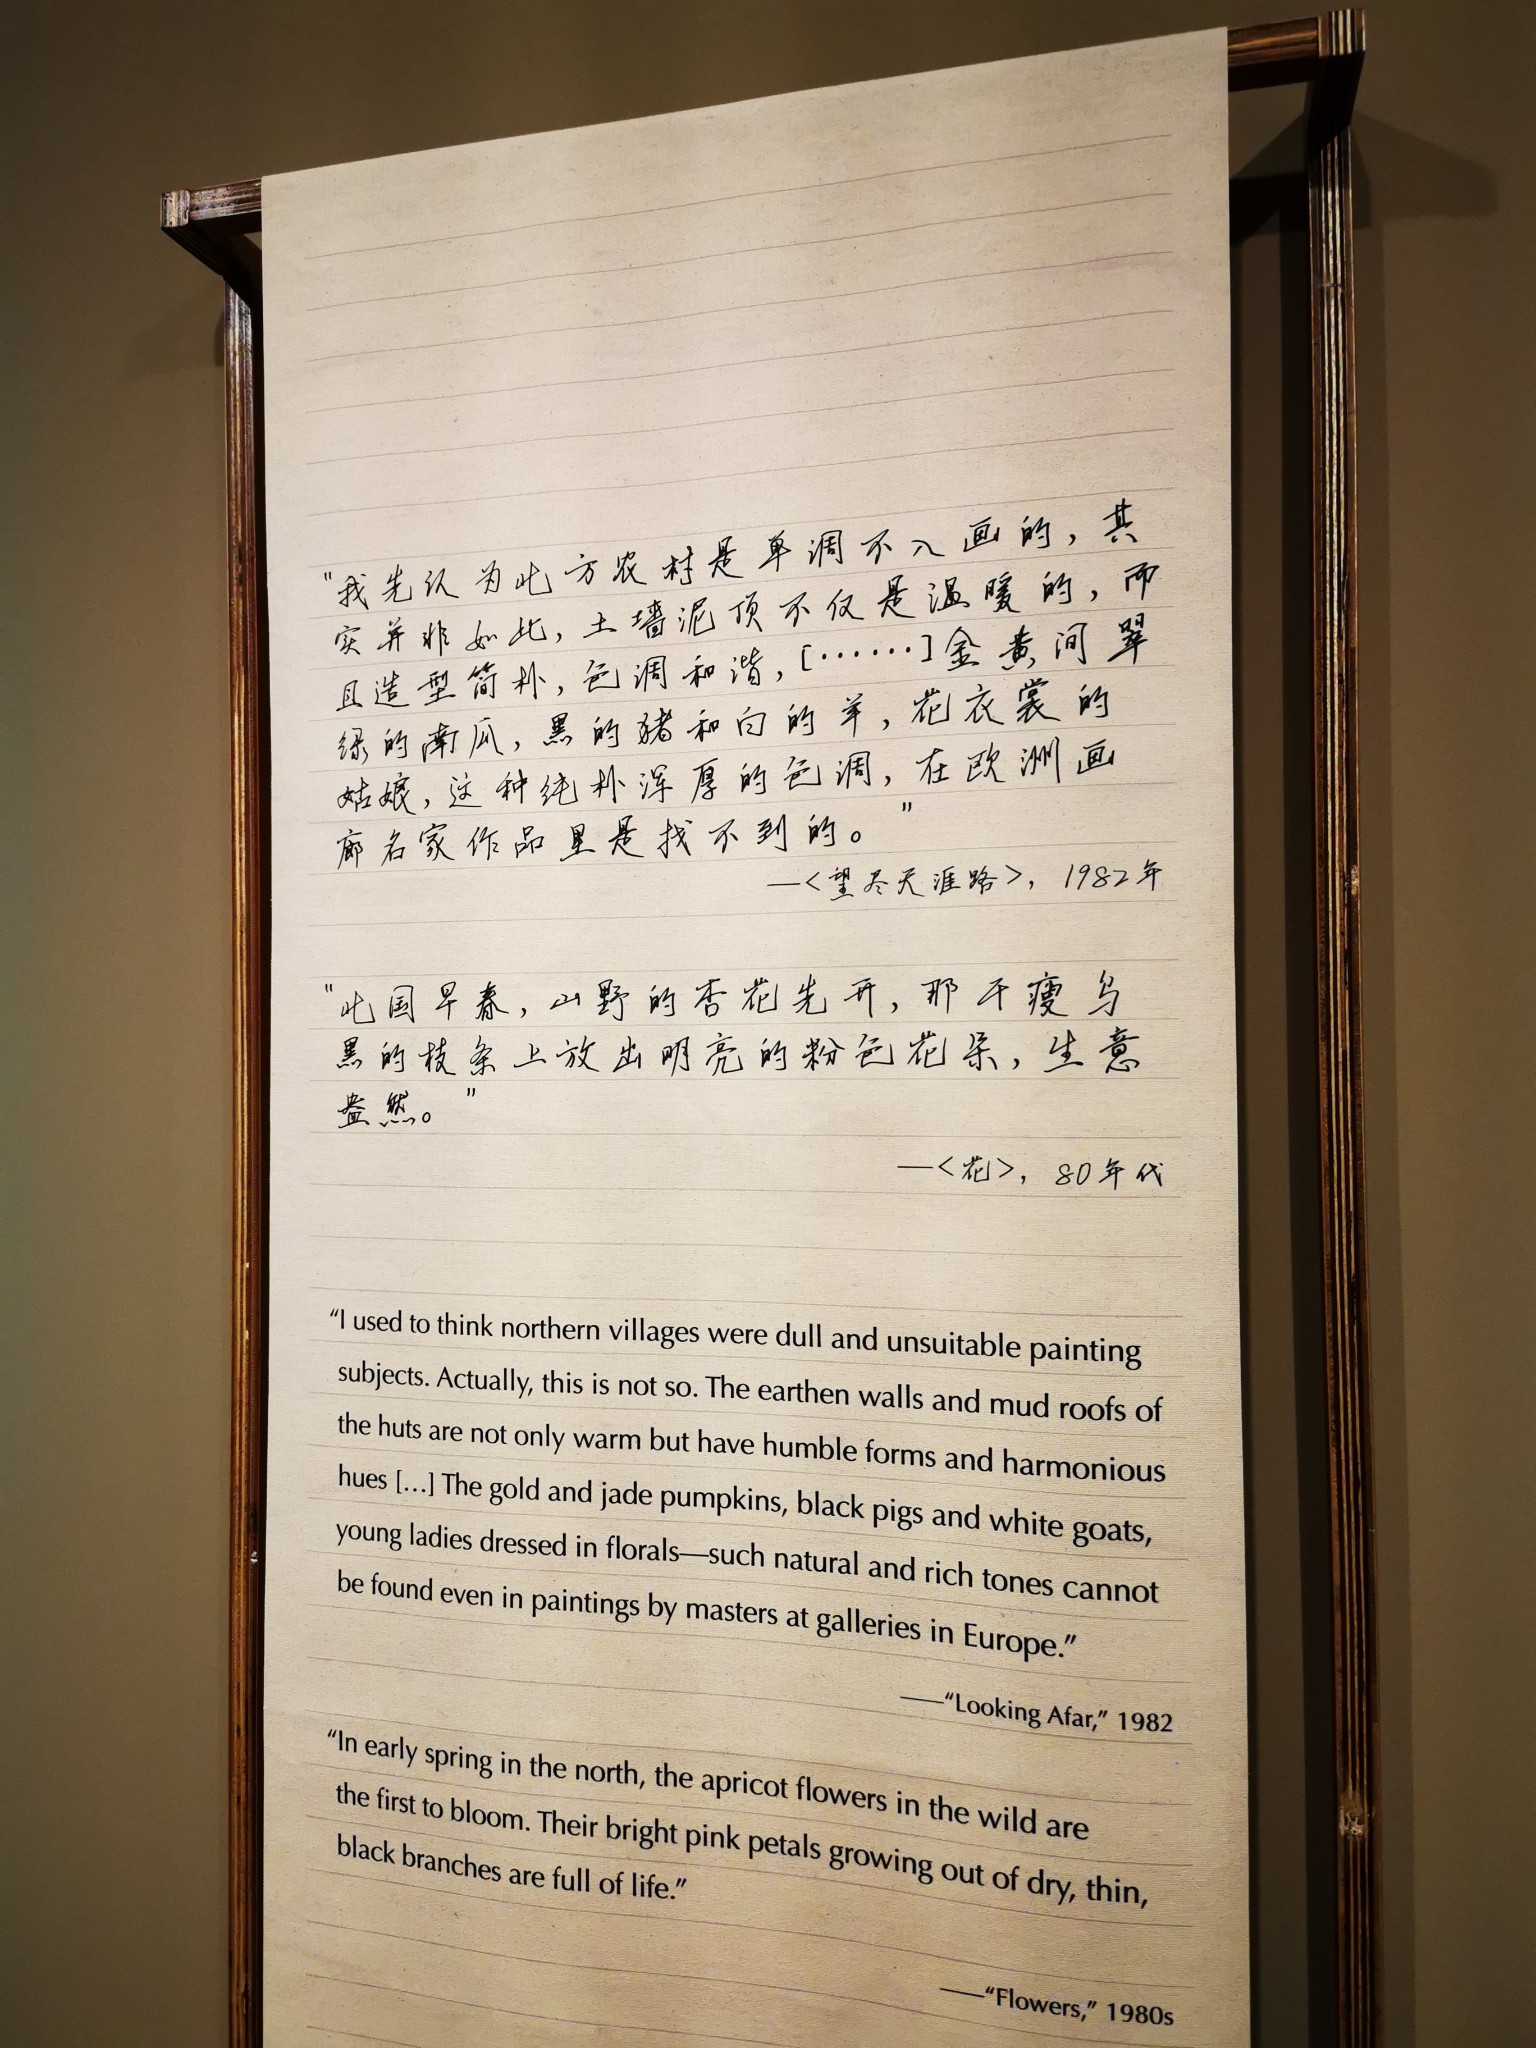 "我先认为北方农村是单调不入画的，其
实并非如此，土墙泥顶不仅是温暖的，而
且造型简朴，色调和谐，[······]金黄间翠
绿的南瓜，黑的猪和白的羊，花衣裳的
姑娘，这种纯朴浑厚的色调，在欧洲画
廊名家作品里是找不到的。"
—<望尽天涯路>，1982年
"北国早春，山野的杏花先开，那干瘦乌
黑的枝条上放出明亮的粉色花朵，生意
盎然。"
—<花>，80年代
“I used to think northern villages were dull and unsuitable painting
subjects. Actually, this is not so. The earthen walls and mud roofs of
the huts are not only warm but have humble forms and harmonious
hues [...] The gold and jade pumpkins, black pigs and white goats,
young ladies dressed in florals—such natural and rich tones cannot
be found even in paintings by masters at galleries in Europe.”
——“Looking Afar,” 1982
“In early spring in the north, the apricot flowers in the wild are
the first to bloom. Their bright pink petals growing out of dry, thin,
black branches are full of life.”
——“Flowers,” 1980s